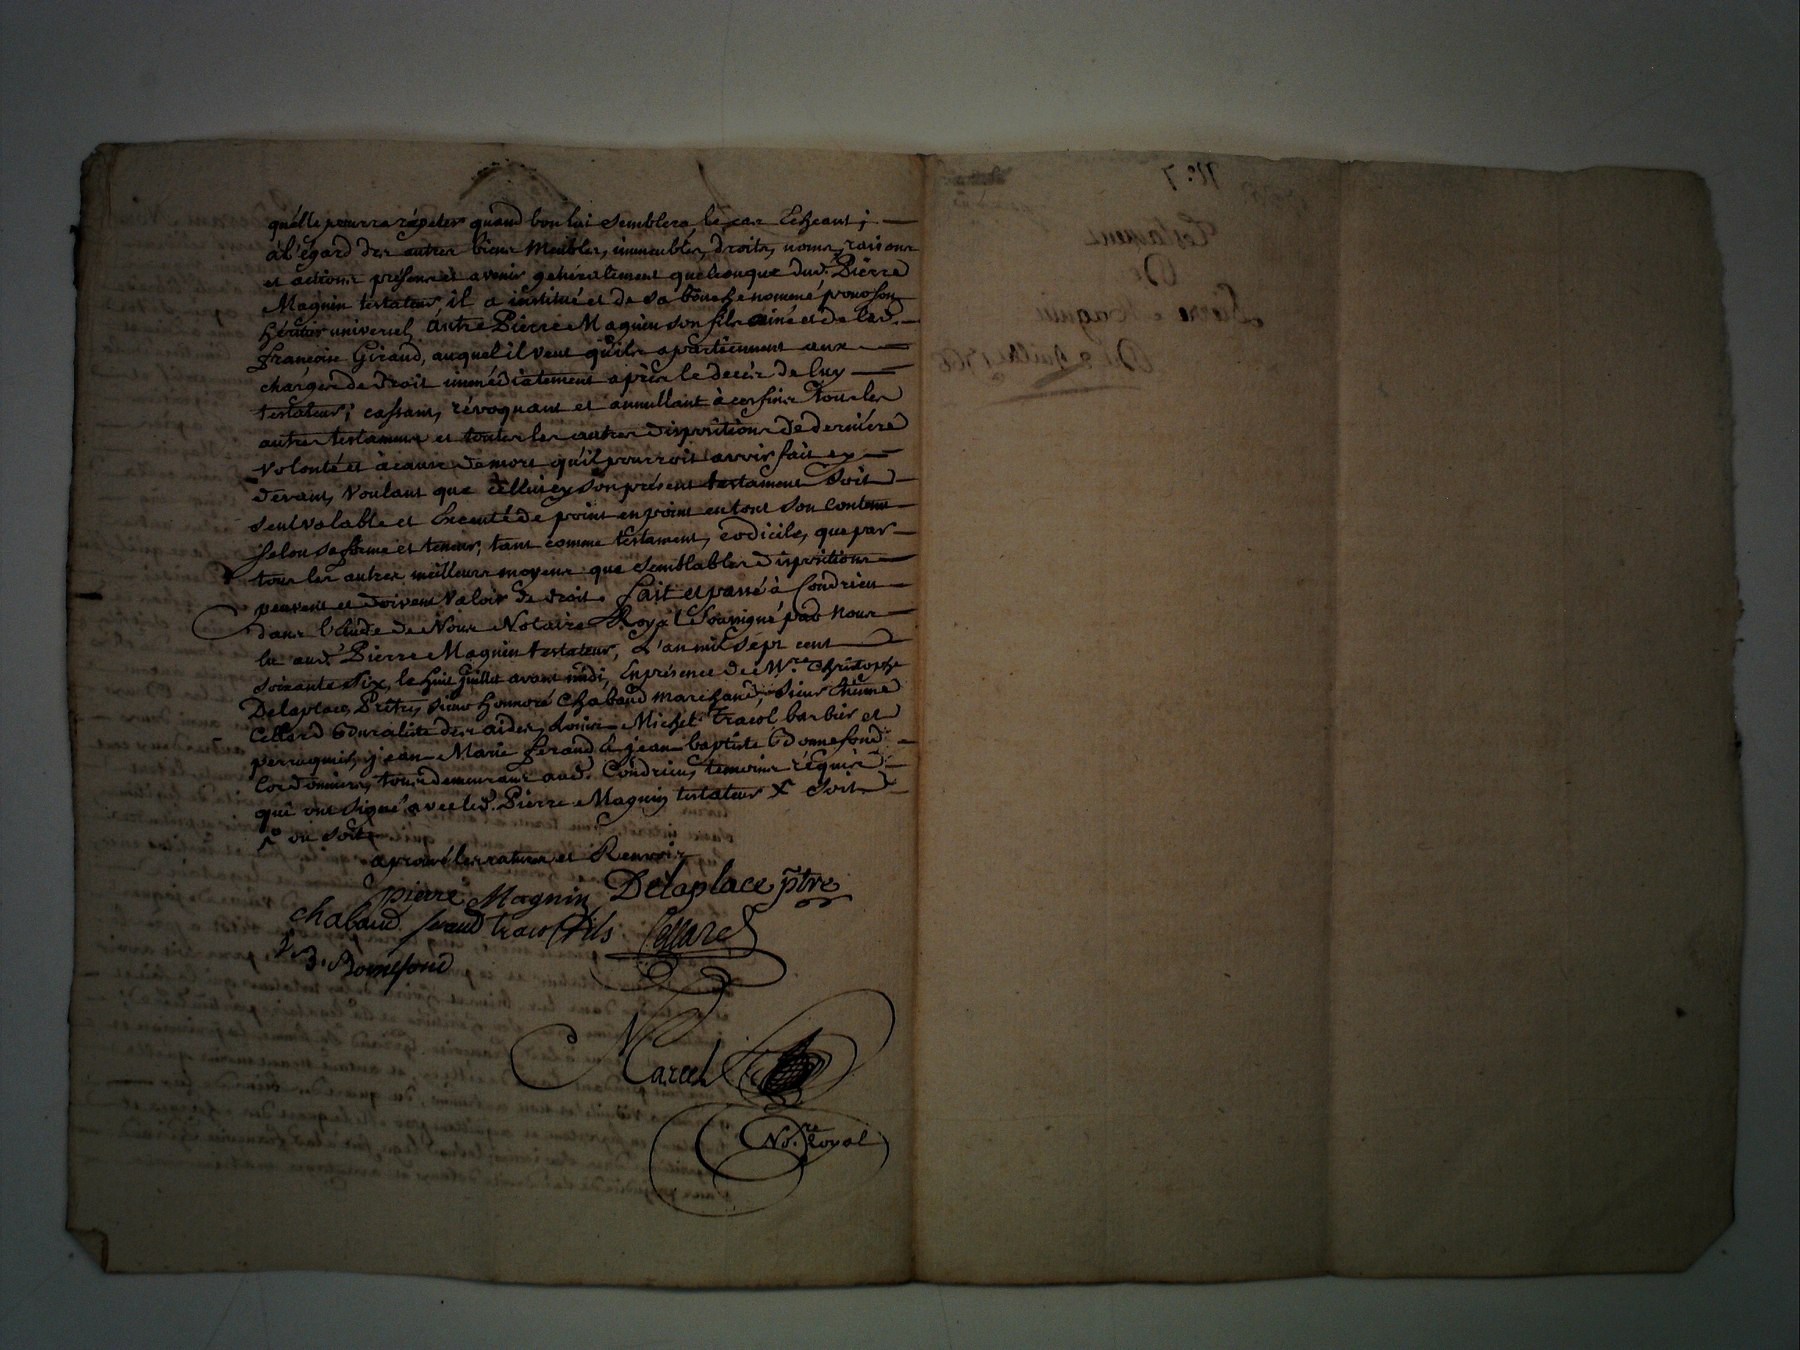 qu'elle pourra répéter quand bon lui semblera, le cas Echeant;
à l'égard des autres biens Meubles, immeubles, droits, noms, raisons
et actions présens et avenir généralement quelconque dud. Pierre
Magnin testateur il a institué et de sa bouche nommé pour son
héritier universel autre Pierre Magnin son fils ainé et de lad.
françoise Giraud, auquel il veut qu'ils apartiennent aux
charges de droit immédiatement après le decès de luy
testateur; cassant, révoquant et annullant à ces fins tous les
autres testamens et toutes les autres dispositions de derniére
volonté et à cause de mort qu'il pourroit avoir fait cy
devant, Voulant que celluicy son présent testament soit
seul valable et Executé de point en point en tout son contenu
selon sa forme et teneur, tant comme testament, codicile, que par
tous les autres meilleurs moyens que semblables dispositions
peuvent et doivent valoir de droit. fait et passé à Condrieu
dans l'Etude de Nous Notaire Royal Soussigné par Nous
lu aud. Pierre Magnin testateur, L'an mil sept cent
soixante six, le huit Juillet avant midi, En présence de Mre. Christophe
Delaplace Prêtre, sieur Honnoré Chabaud marchand, sieur
Cellard Buraliste des aides, Michel Tracol barbier et
perruquier, jean Marie ferand & jean baptiste Bonnefond
Cordonniers, tous demeurans aud. Condrieu, temoins réquis
qui ont signé avec led. Pierre Magnin testateur X soit
X ou soit
aprouvé les ratures et Renvoi
pierre Magnin Delaplace ptre
chabaud ferand tracol fils Cellard
j. B. Bonnefond
Marcel
No.re Royal
N.º 7
Testament
De
Pierre Magnin
Du 8 Juillet 1766